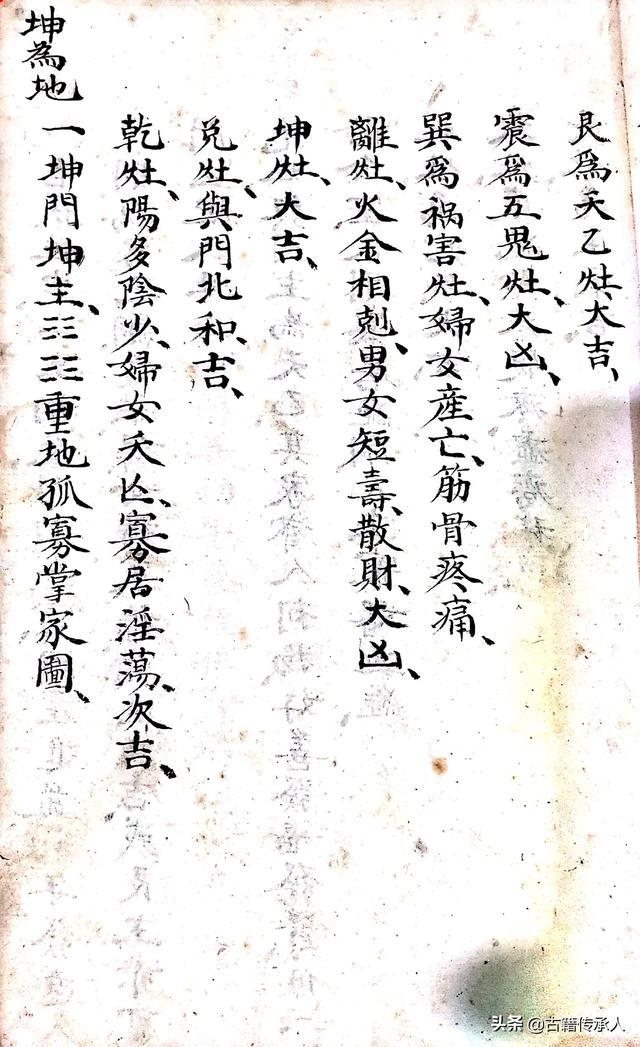 艮爲天乙灶、大吉、
震爲五鬼灶、大凶、
巽爲禍害灶、婦女産亡、筋骨疼痛、
離灶、火金相剋、男女短壽、散財、大凶、
坤灶、大吉、
兑灶、與門北和、吉、
乾灶、陽多陰少、婦女夭亡、寡居淫蕩、次吉、
坤為地
一坤門坤主、☷☷重地孤寡掌家圖、
头条 @古籍传承人